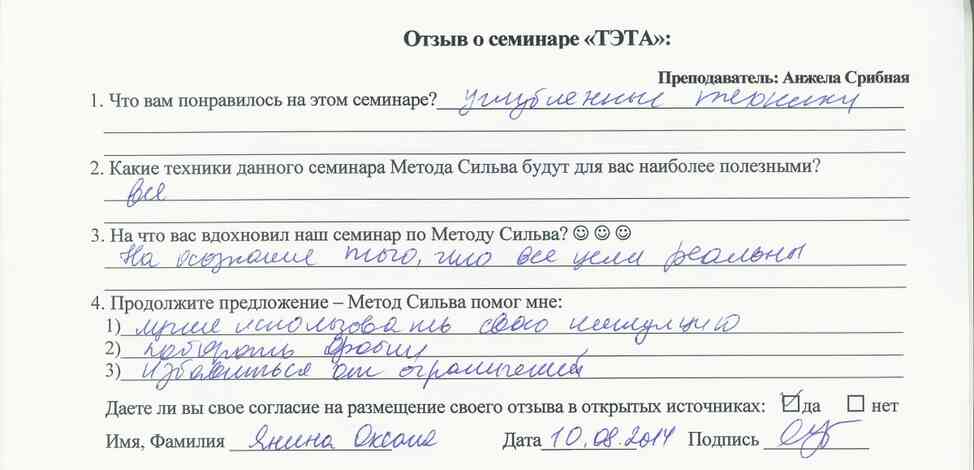 Отзыв о семинаре «ТЭТА»:
Преподаватель: Анжела Срибная
1. Что вам понравилось на этом семинаре? углубленные техники
2. Какие техники данного семинара Метода Сильва будут для вас наиболее полезными?
все
3. На что вас вдохновил наш семинар по Методу Сильва? ☺ ☺ ☺
На осознание того, что все цели реальны
4. Продолжите предложение – Метод Сильва помог мне:
1) лучше использовать свою интуицию
2) побороть
3) избавиться от ограничений
Даете ли вы свое согласие на размещение своего отзыва в открытых источниках: ☑ да ☐ нет
Имя, Фамилия Янина Оксана Дата 10.08.2014 Подпись